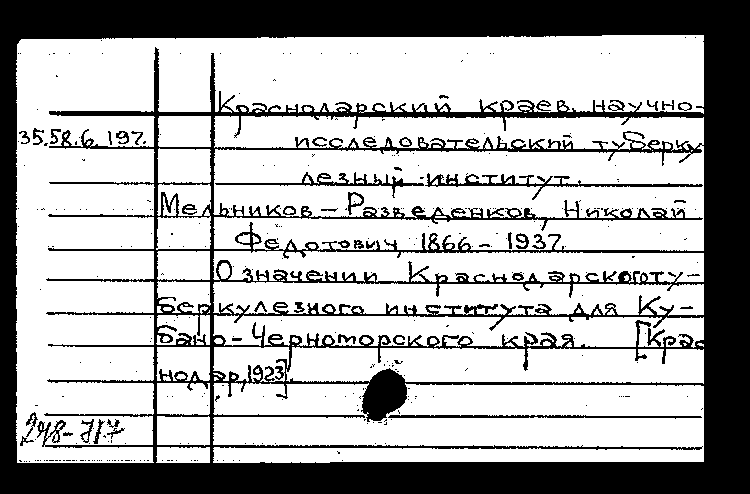 Краснодарский краев. научно-
35.58.6.197. исследовательский туберку
лезный институт.
Мельников-Разведенков, Николай
Федотович, 1866-1937.
О значении Краснодарского ту-
беркулезного института для Ку-
бано-Черноморского края. [Крас
нодар, 1923].